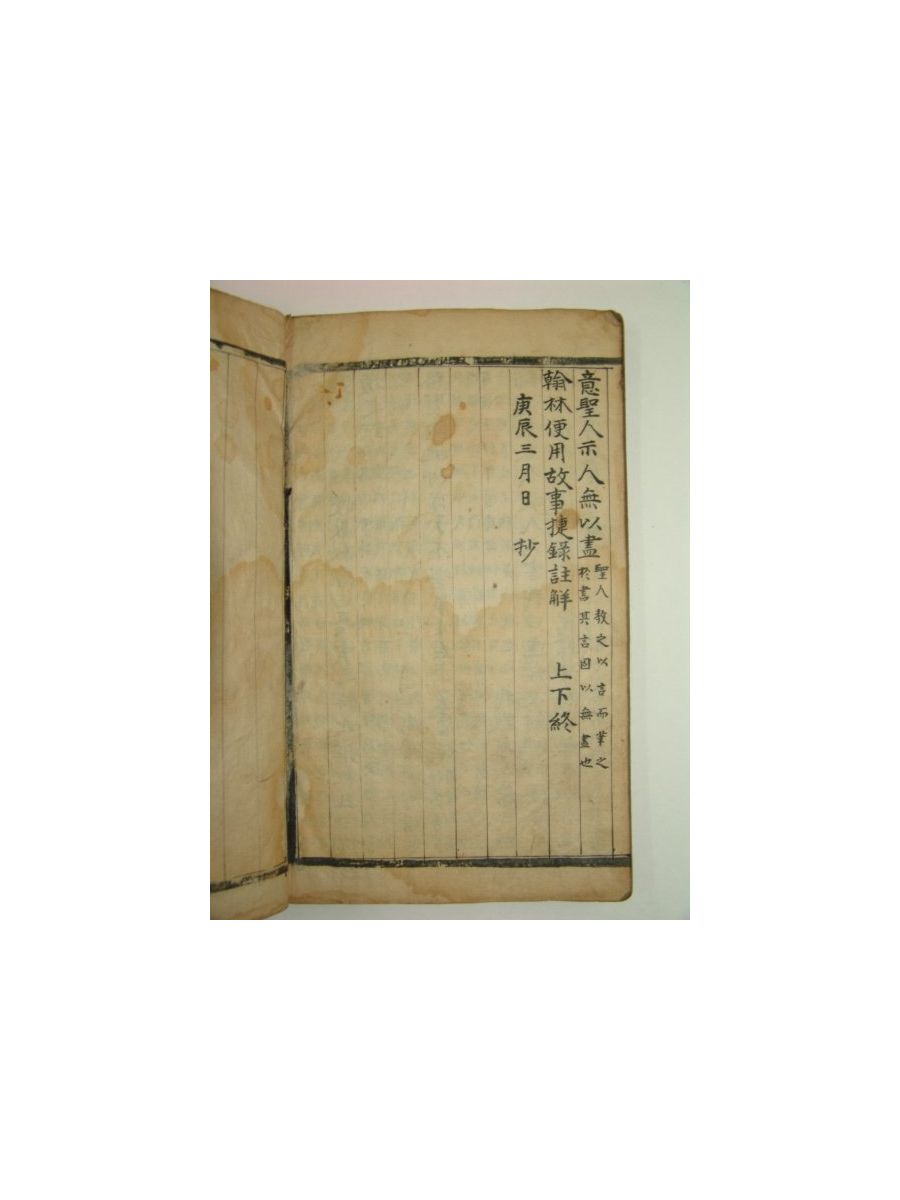 意聖人示人無以盡聖人教之以言而筆之
於書其言因以無盡也
翰林便用故事捷錄註觧 上下終
庚辰三月日 抄